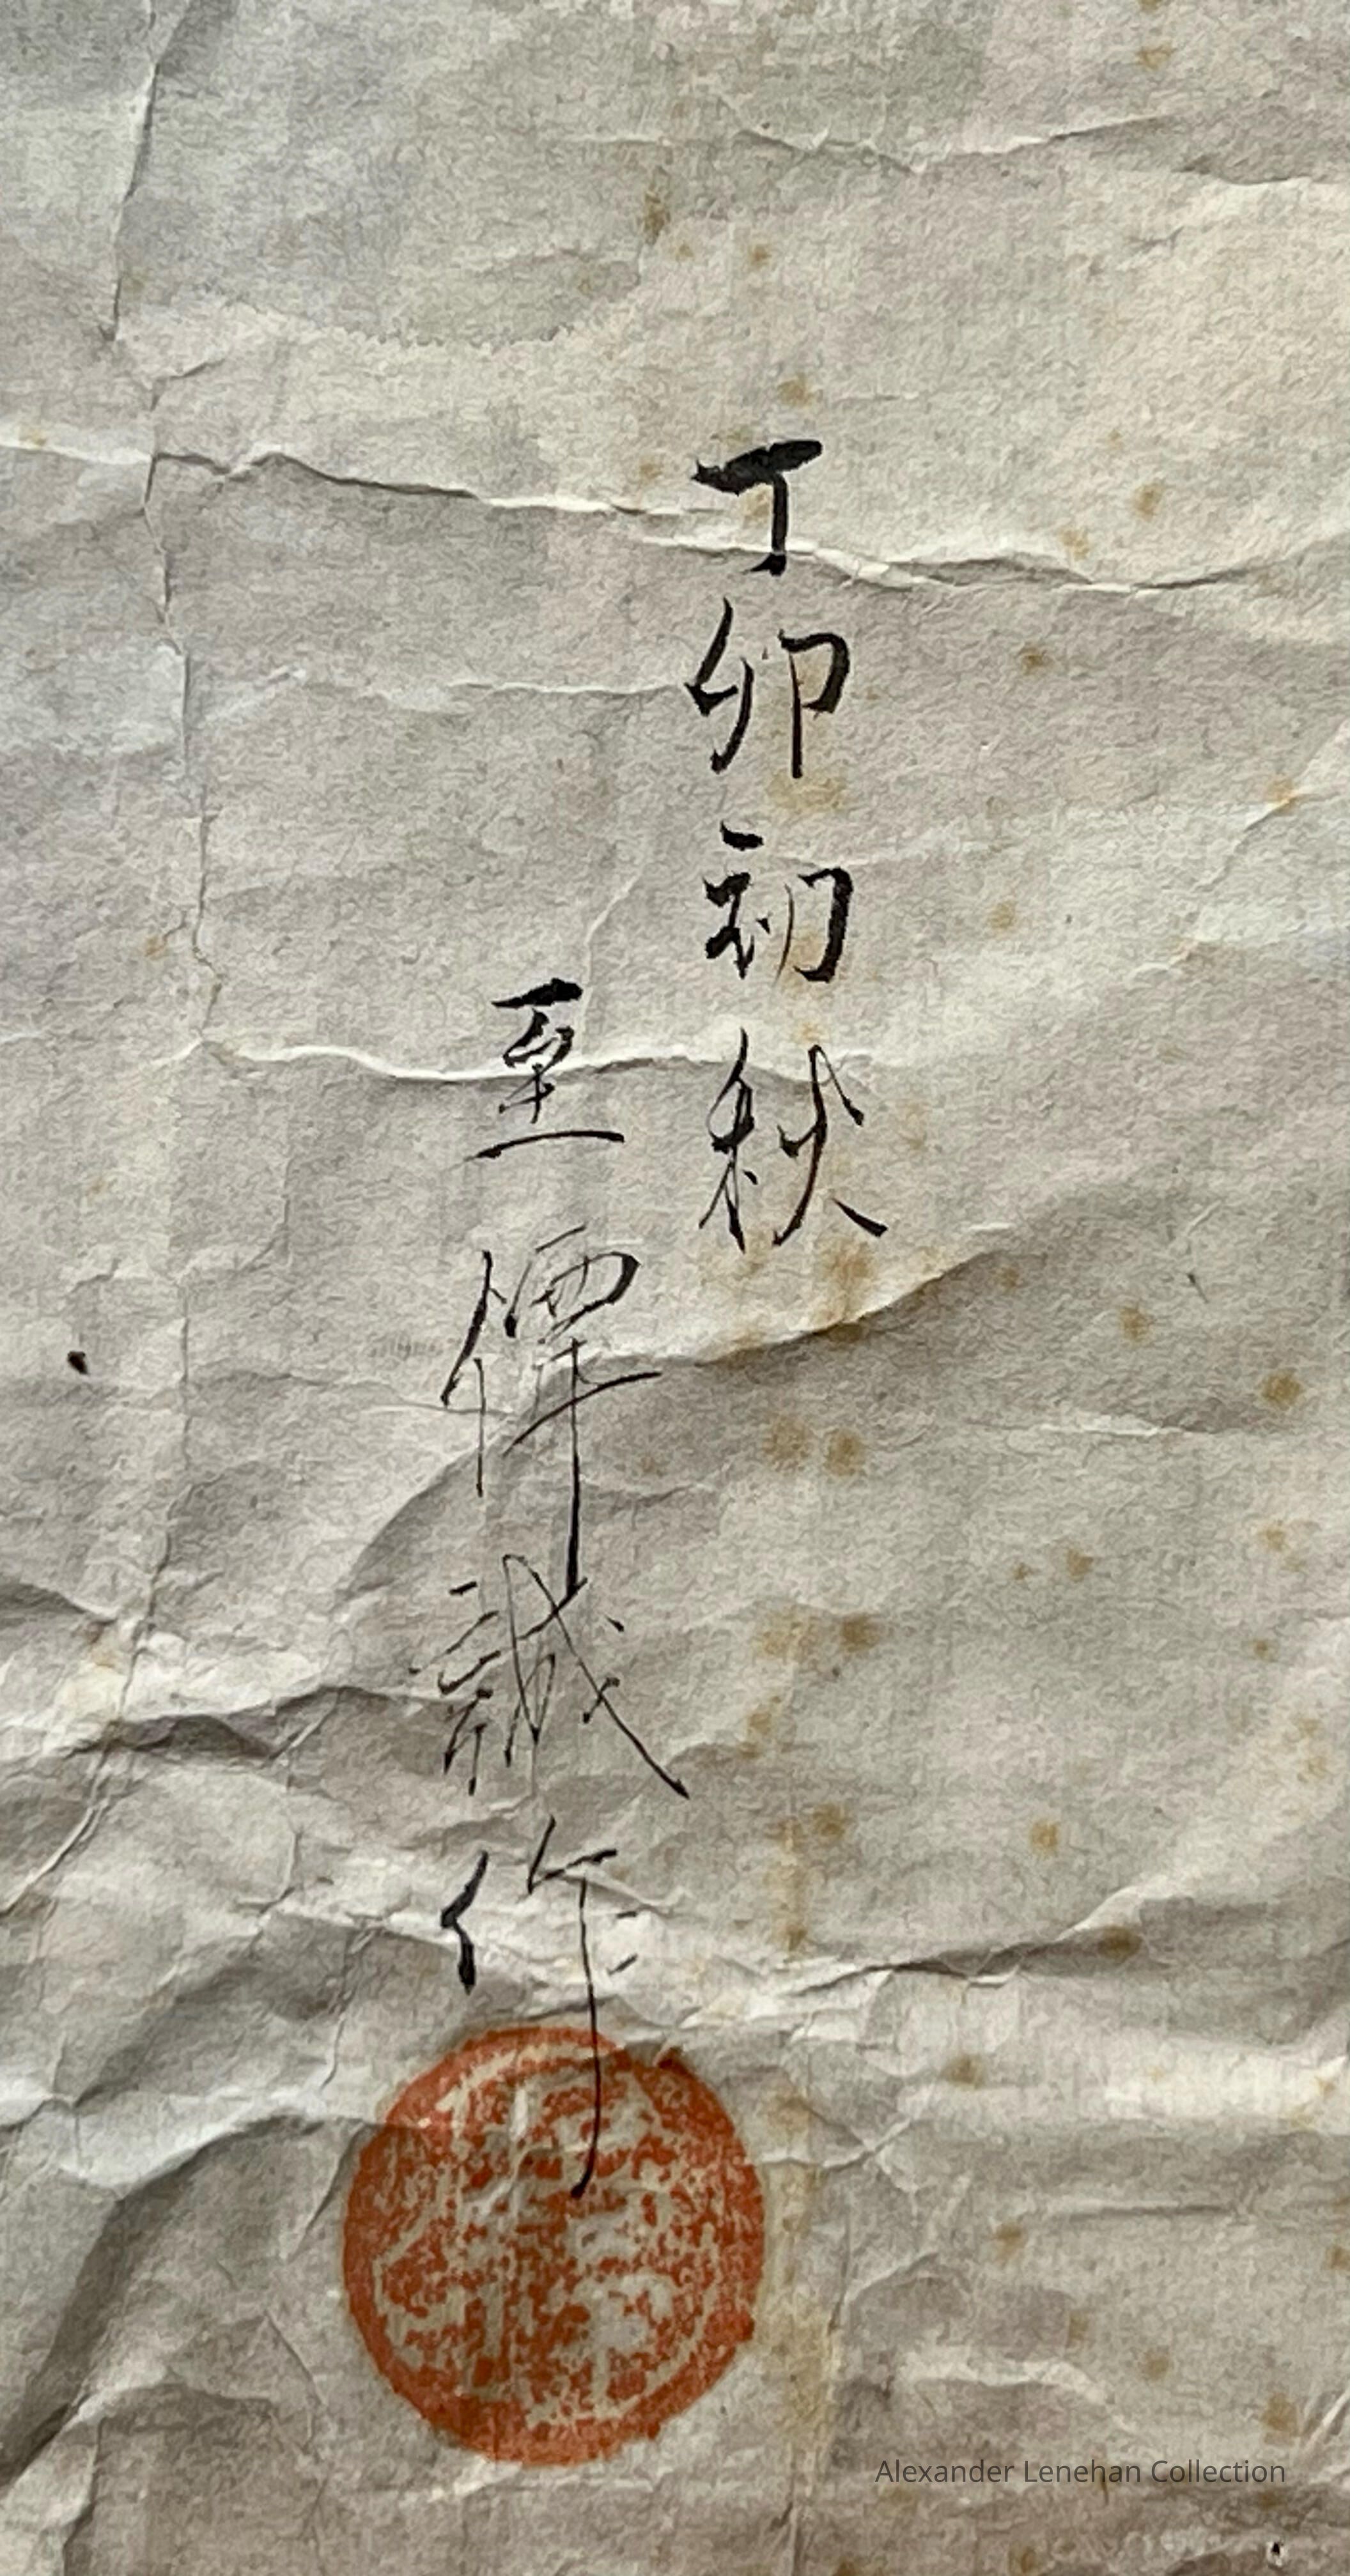 丁卯初秋
至 誠作
Alexander Lenehan Collection